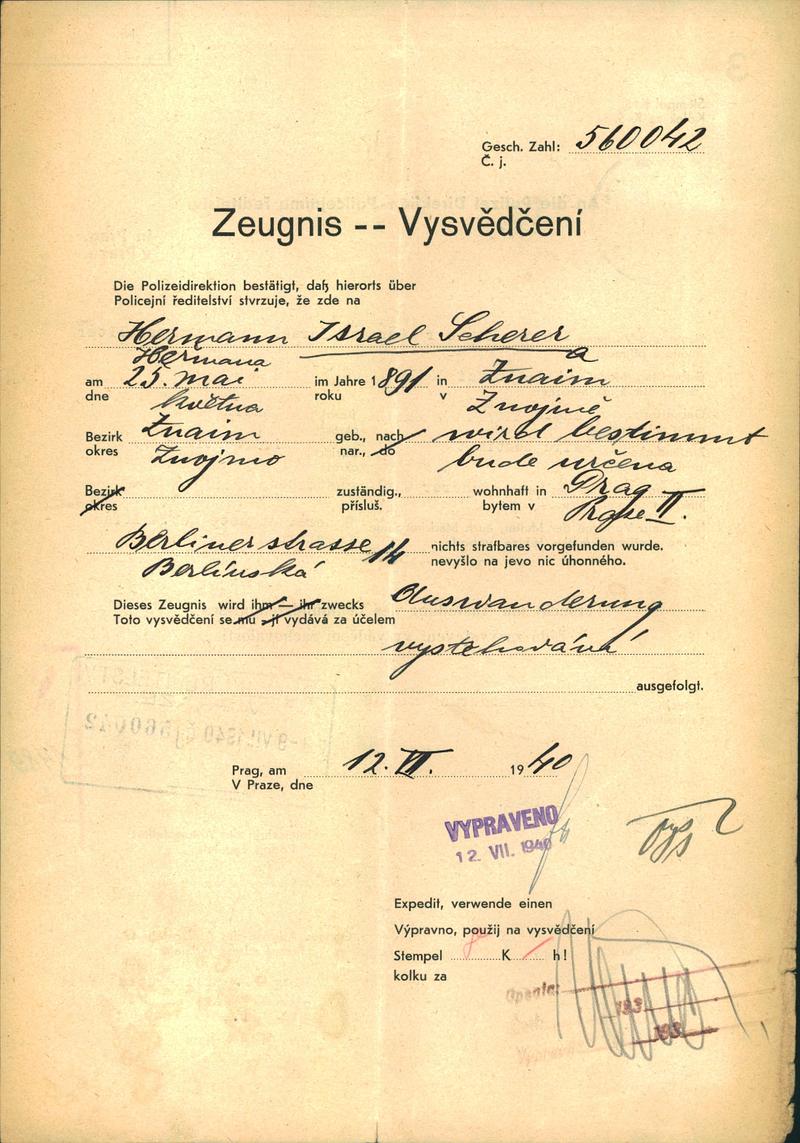 Gesch. Zahl: 560042
Č. j.
Zeugnis -- Vysvědčení
Die Polizeidirektion bestätigt, daß hierorts über
Policejní ředitelství stvrzuje, že zde na
Hermann Israel Scherer
Hermana a
am 25. Mai im Jahre 1891 in Znaim
dne května roku v Znojmě
Bezirk Znaim geb., nach wird bestimmt
okres Znojmo nar., do bude určena
Bezirk zuständig., wohnhaft in Prag
okres přísluš. bytem v Praze II.
Berlinerstrasse 14 nichts strafbares vorgefunden wurde.
Berlínská nevyšlo na jevo nic úhonného.
Dieses Zeugnis wird ihm — ihr zwecks Auswanderung
Toto vysvědčení se mu – jí vydává za účelem
vystěhování
ausgefolgt.
Prag, am 12. VII. 1940
V Praze, dne
VYPRAVENO
12. VII. 1940
Expedit, verwende einen
Výpravno, použij na vysvědčení
Stempel K h!
kolku za
193
193